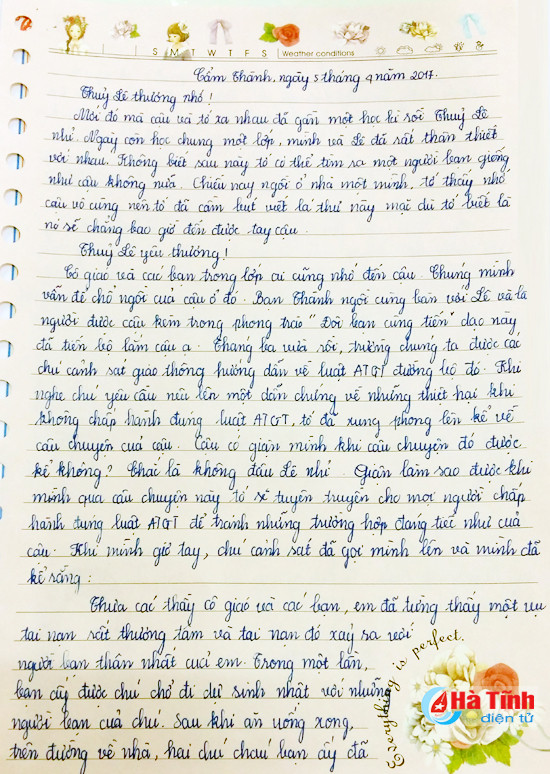 S M T W T F S Weather conditions
Cẩm Thành, ngày 5 tháng 4 năm 2017.
Thuỳ Lê thương nhớ!
Mới đó mà cậu và tớ xa nhau đã gần một học kì rồi Thuỳ Lê
nhỉ. Ngày còn học chung một lớp, mình và Lê đã rất thân thiết
với nhau. Không biết sau này tớ có thể tìm ra một người bạn giống
như cậu không nữa. Chiều nay ngồi ở nhà một mình, tớ thấy nhớ
cậu vô cùng nên tớ đã cầm bút viết lá thư này mặc dù tớ biết là
nó sẽ chẳng bao giờ đến được tay cậu.
Thuỳ Lê yêu thương!
Cô giáo và các bạn trong lớp ai cũng nhớ đến cậu. Chúng mình
vẫn để chỗ ngồi của cậu ở đó. Bạn Thanh ngồi cùng bàn với Lê và là
người được cậu kèm trong phong trào "Đôi bạn cùng tiến" dạo này
đã tiến bộ lắm cậu ạ. Tháng ba vừa rồi, trường chúng ta được các
chú cảnh sát giao thông hướng dẫn về luật ATGT đường bộ đó. Khi
nghe chú yêu cầu nêu lên một dẫn chứng về những thiệt hại khi
không chấp hành đúng luật ATGT, tớ đã xung phong lên kể về
câu chuyện của cậu. Cậu có giận mình khi câu chuyện đó được
kể không? Chắc là không đâu Lê nhỉ. Giận làm sao được khi
mình qua câu chuyện này tớ sẽ tuyên truyền cho mọi người chấp
hành đúng luật ATGT để tránh những trường hợp đáng tiếc như của
cậu. Khi mình giơ tay, chú cảnh sát đã gọi mình lên và mình đã
kể rằng:
Thưa các thầy cô giáo và các bạn, em đã từng thấy một vụ
tai nạn rất thương tâm và tai nạn đó xảy ra với
người bạn thân nhất của em. Trong một lần,
bạn ấy được chú chở đi dự sinh nhật với những
người bạn của chú. Sau khi ăn uống xong,
trên đường về nhà, hai chú cháu bạn ấy đã
Everything is perfect.
Hà Tĩnh
điện tử